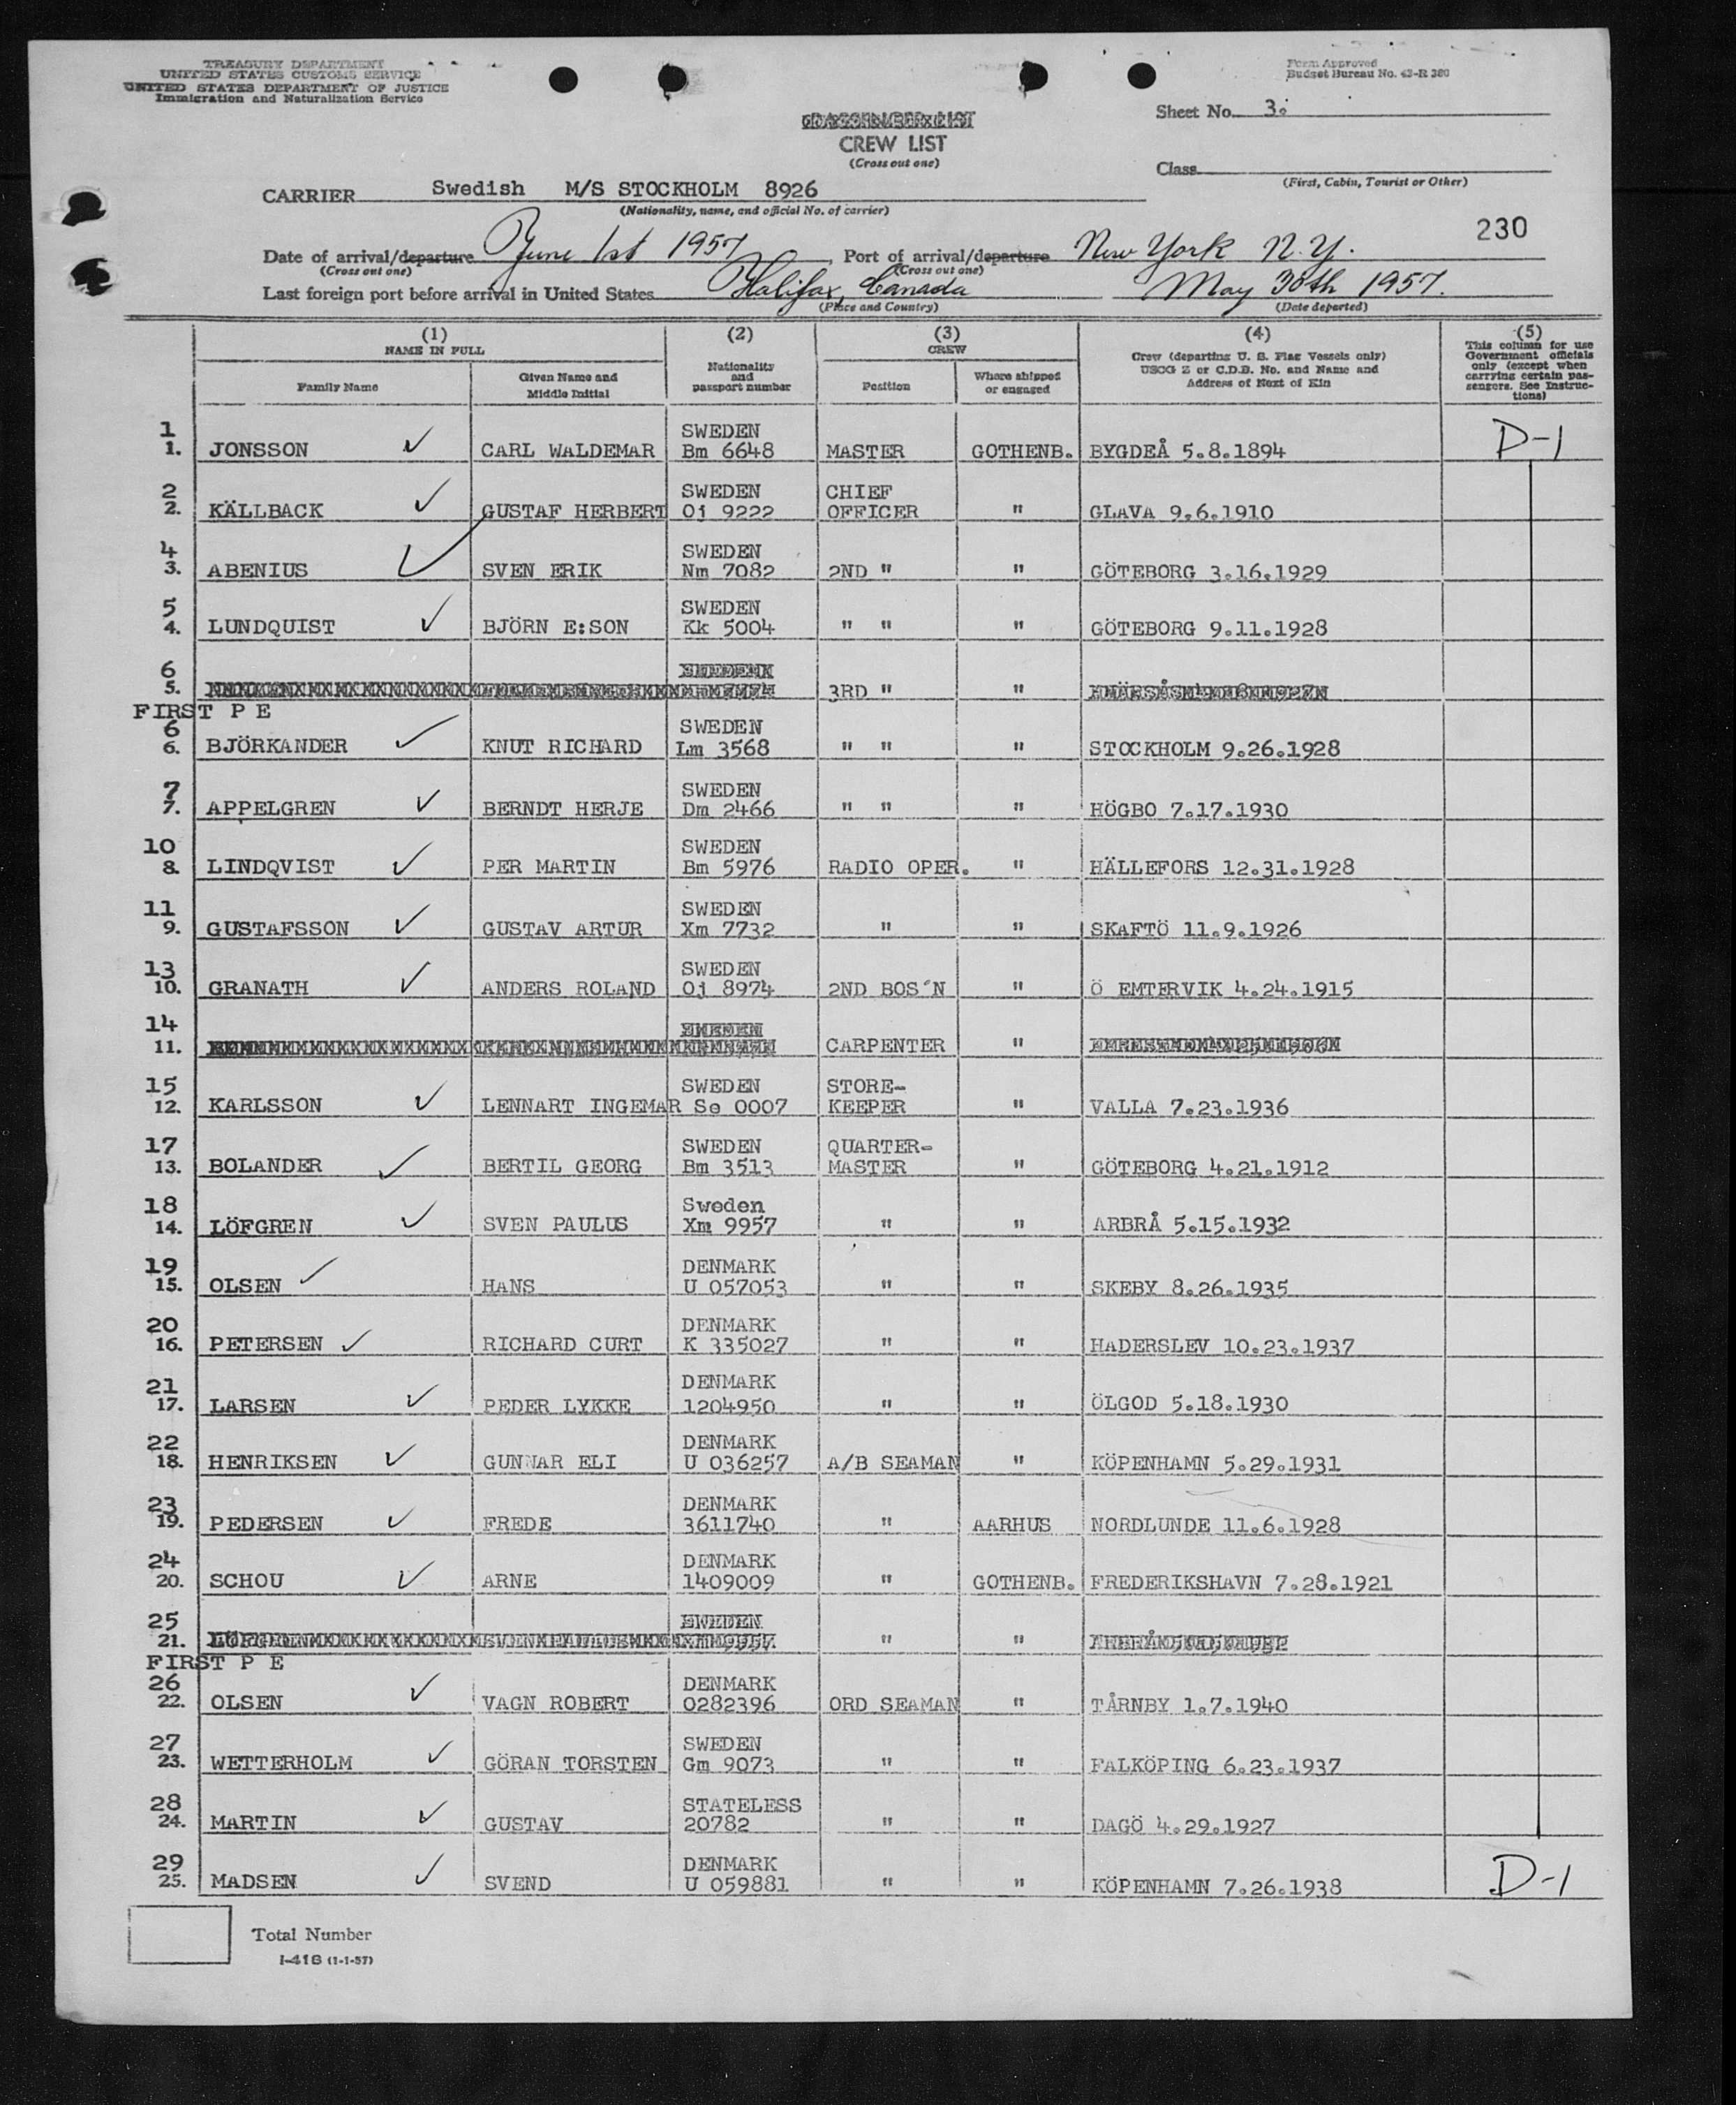 TREASURY DEPARTMENT
UNITED STATES CUSTOMS SERVICE
UNITED STATES DEPARTMENT OF JUSTICE
Immigration and Naturalization Service
Form Approved
Budget Bureau No. 43-R 380
Sheet No. 3.
CREW LIST
(Cross out one)
Class
(First, Cabin, Tourist or Other)
CARRIER Swedish M/S STOCKHOLM 8926
(Nationality, name, and official No. of carrier)
230
Date of arrival/departure June 1st 1957, Port of arrival/departure New York N.Y.
(Cross out one) (Cross out one)
Last foreign port before arrival in United States Halifax, Canada May 30th 1957.
(Place and Country) (Date departed)
(1) (2) (3) (4) (5)
NAME IN FULL
Family Name
Given Name and Middle Initial
Nationality and passport number
CREW
Position
Where shipped or engaged
Crew (departing U. S. Flag Vessels only)
USCG Z or C.D.B. No. and Name and
Address of Next of Kin
This column for use
Government officials
only (except when
carrying certain pas-
sengers. See Instruc-
tions)
1 SWEDEN D-1
1. JONSSON CARL WALDEMAR Bm 6648 MASTER GOTHENB. BYGDEÅ 5.8.1894
2 SWEDEN CHIEF
2. KÄLLBACK GUSTAF HERBERT Oj 9222 OFFICER " GLAVA 9.6.1910
4 SWEDEN
3. ABENIUS SVEN ERIK Nm 7082 2ND " " GÖTEBORG 3.16.1929
5 SWEDEN
4. LUNDQUIST BJÖRN E:SON Kk 5004 " " " GÖTEBORG 9.11.1928
6
5. 3RD " "
FIRST P E
6 SWEDEN
6. BJÖRKANDER KNUT RICHARD Lm 3568 " " " STOCKHOLM 9.26.1928
7 SWEDEN
7. APPELGREN BERNDT HERJE Dm 2466 " " " HÖGBO 7.17.1930
10 SWEDEN
8. LINDQVIST PER MARTIN Bm 5976 RADIO OPER. " HÄLLEFORS 12.31.1928
11 SWEDEN
9. GUSTAFSSON GUSTAV ARTUR Xm 7732 " " SKAFTÖ 11.9.1926
13 SWEDEN
10. GRANATH ANDERS ROLAND Oj 8974 2ND BOS'N " Ö EMTERVIK 4.24.1915
14 SWEDEN
11. CARPENTER "
15 SWEDEN STORE-
12. KARLSSON LENNART INGEMAR Se 0007 KEEPER " VALLA 7.23.1936
17 SWEDEN QUARTER-
13. BOLANDER BERTIL GEORG Bm 3513 MASTER " GÖTEBORG 4.21.1912
18 Sweden
14. LÖFGREN SVEN PAULUS Xm 9957 " " ARBRÅ 5.15.1932
19 DENMARK
15. OLSEN HANS U 057053 " " SKEBY 8.26.1935
20 DENMARK
16. PETERSEN RICHARD CURT K 335027 " " HADERSLEV 10.23.1937
21 DENMARK
17. LARSEN PEDER LYKKE 1204950 " " ÖLGOD 5.18.1930
22 DENMARK
18. HENRIKSEN GUNNAR ELI U 036257 A/B SEAMAN " KÖPENHAMN 5.29.1931
23 DENMARK
19. PEDERSEN FREDE 3611740 " AARHUS NORDLUNDE 11.6.1928
24 DENMARK
20. SCHOU ARNE 1409009 " GOTHENB. FREDERIKSHAVN 7.28.1921
25 SWEDEN
21. " "
FIRST P E
26 DENMARK
22. OLSEN VAGN ROBERT 0282396 ORD SEAMAN " TÅRNBY 1.7.1940
27 SWEDEN
23. WETTERHOLM GÖRAN TORSTEN Gm 9073 " " FALKÖPING 6.23.1937
28 STATELESS
24. MARTIN GUSTAV 20782 " " DAGÖ 4.29.1927
29 DENMARK
25. MADSEN SVEND U 059881 " " KÖPENHAMN 7.26.1938 D-1
Total Number
I-418 (1-1-57)